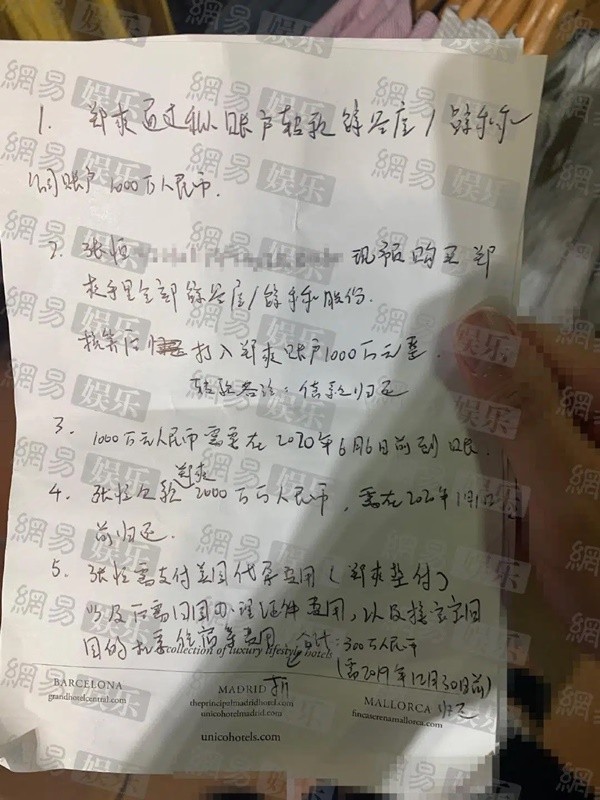 1. 郑爽通过私人账户转款 /
公司账户 1000万人民币.
2. 张恒 现币购买郑
爽手里全部 / 股份.
核算后 打入郑爽账户1000万元整.
转账备注:借款归还
3. 1000万元人民币需要在2020年6月6日前到账.
4. 张恒欠款郑爽2000万元人民币, 需在2020年1月1日
前归还.
5. 张恒需支付美国代孕费用(郑爽垫付)
以及后需门国办理证件费用, 以及接宝宝回
国的机票住宿等费用 合计:300万人民币
(需2019年12月30日前)
collection of luxury lifestyle hotels
BARCELONA
grandhotelcentral.com
MADRID
theprincipalmadridhotel.com
unicohotelmadrid.com
MALLORCA 归还
fincaserenamallorca.com
unicohotels.com
網易娱乐